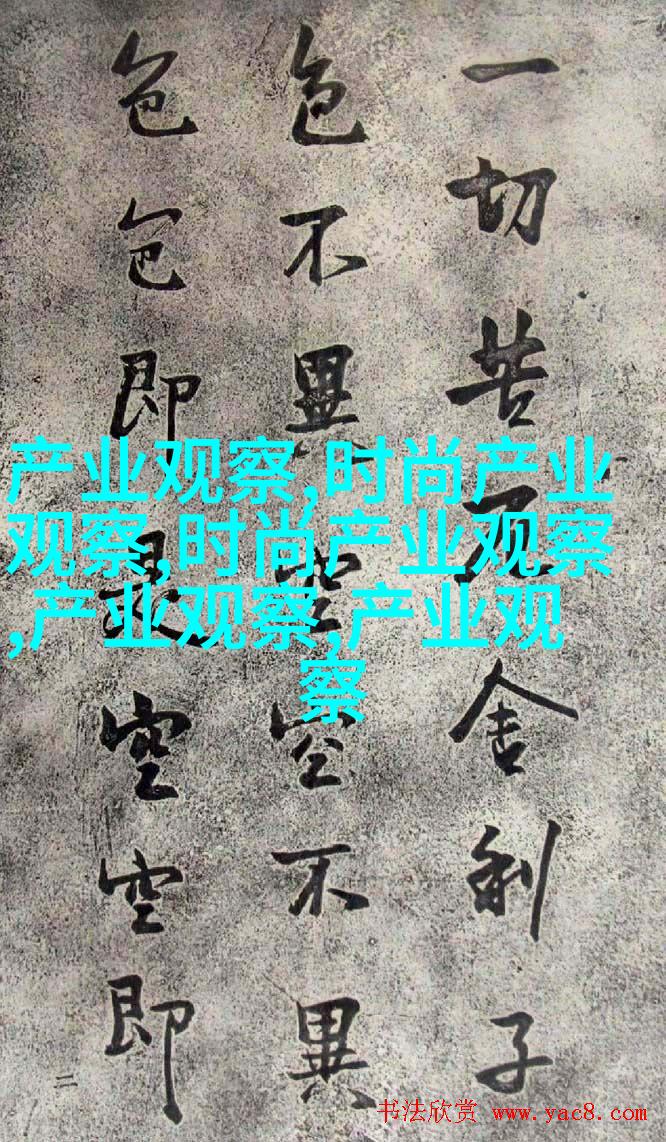 一切苦厄舍利子
色不異空空不異
色色即是空空即
二
产业观察,时尚产业
观察,时尚产业观察
,产业观察,产业观
察
书法欣赏 www.yac8.com